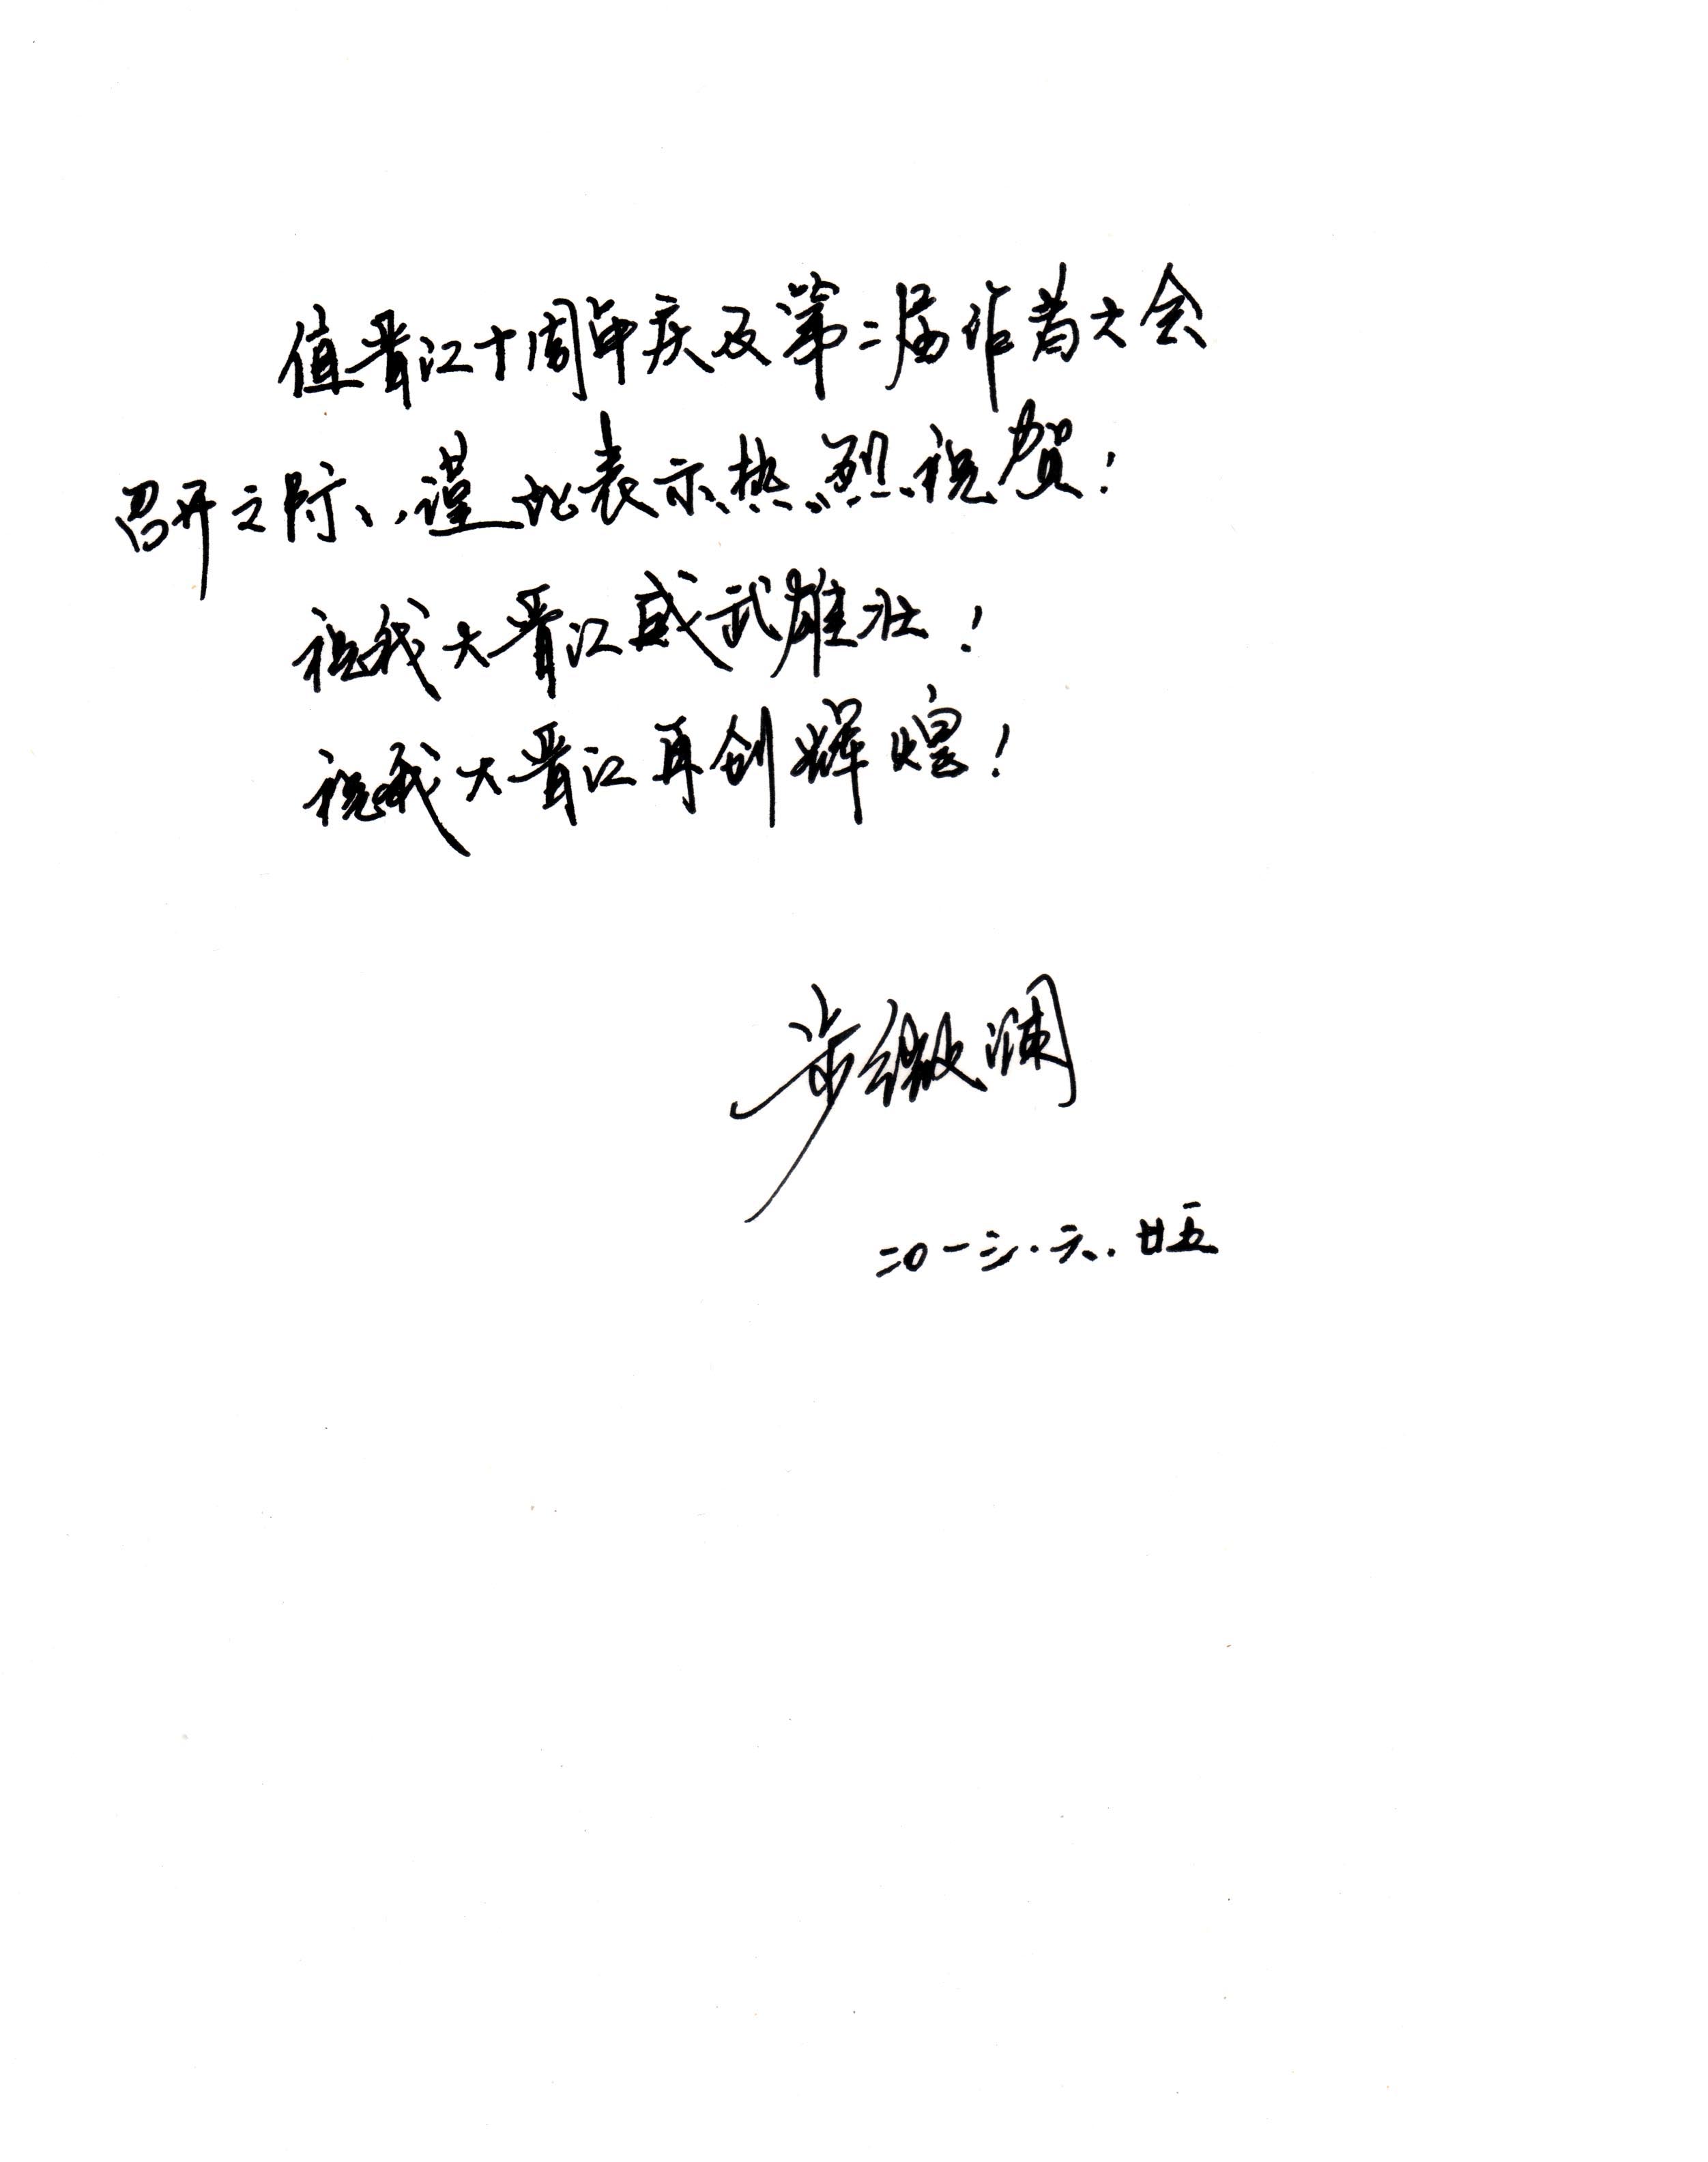 值晋江十周年庆及第二届作者大会
召开之际,谨此表示热烈祝贺!
祝我大晋江威武雄壮!
祝我大晋江再创辉煌!
步微澜
二〇一三.六.廿五